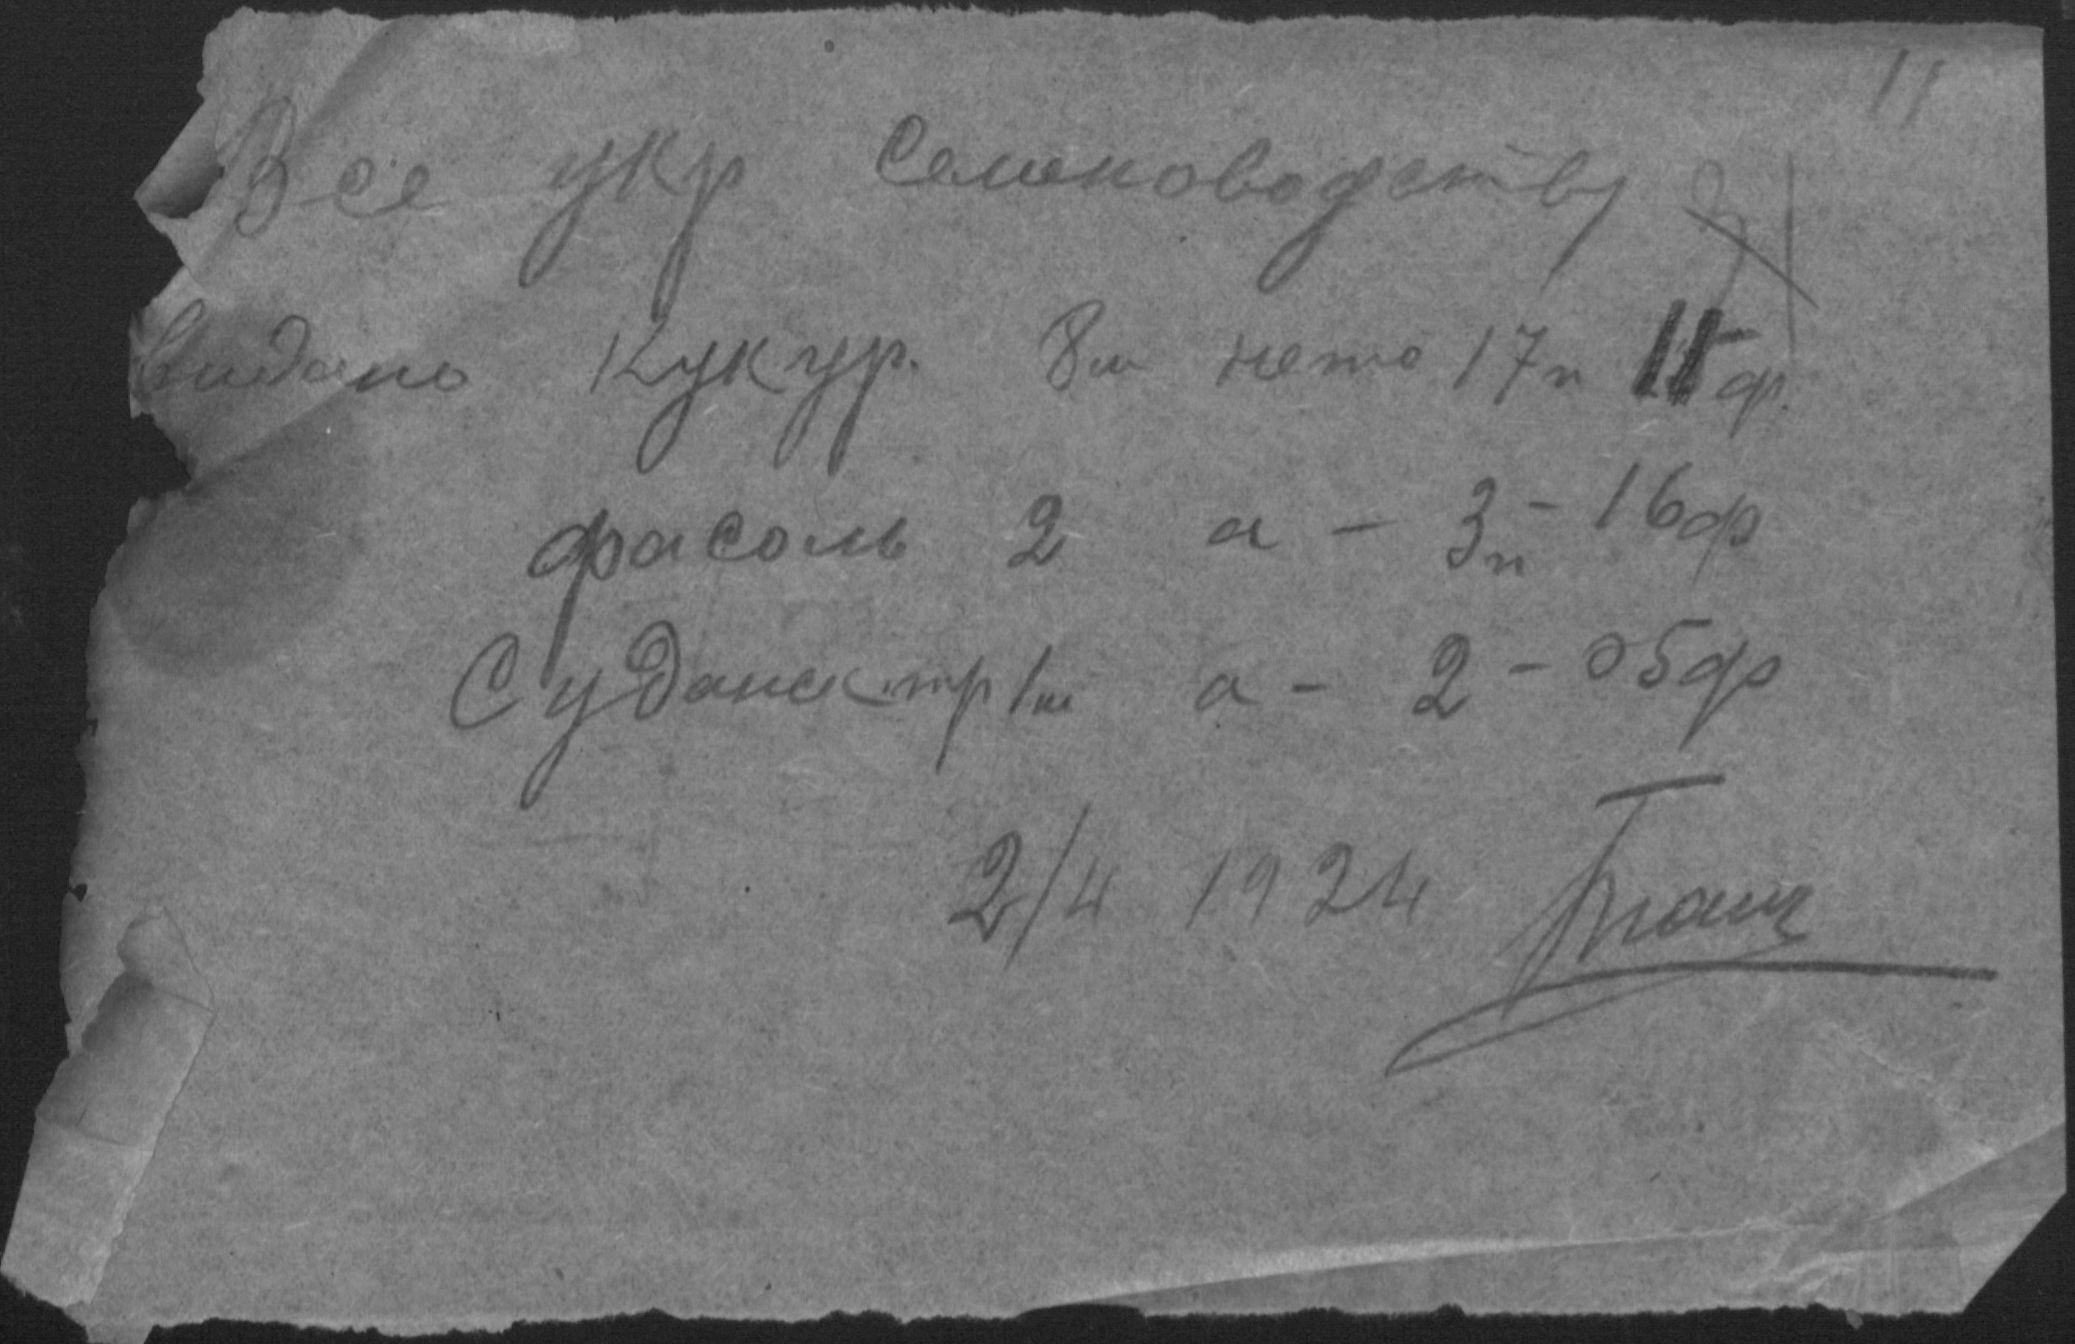 11
Все укр Семеноводству
видано Кукур. 8 ш нето 17 п 15 ф.
фасоль 2 а - 3 п - 16 ф
Суданск. тр 1 ш а - 2 - 05 ф
2/4 1924